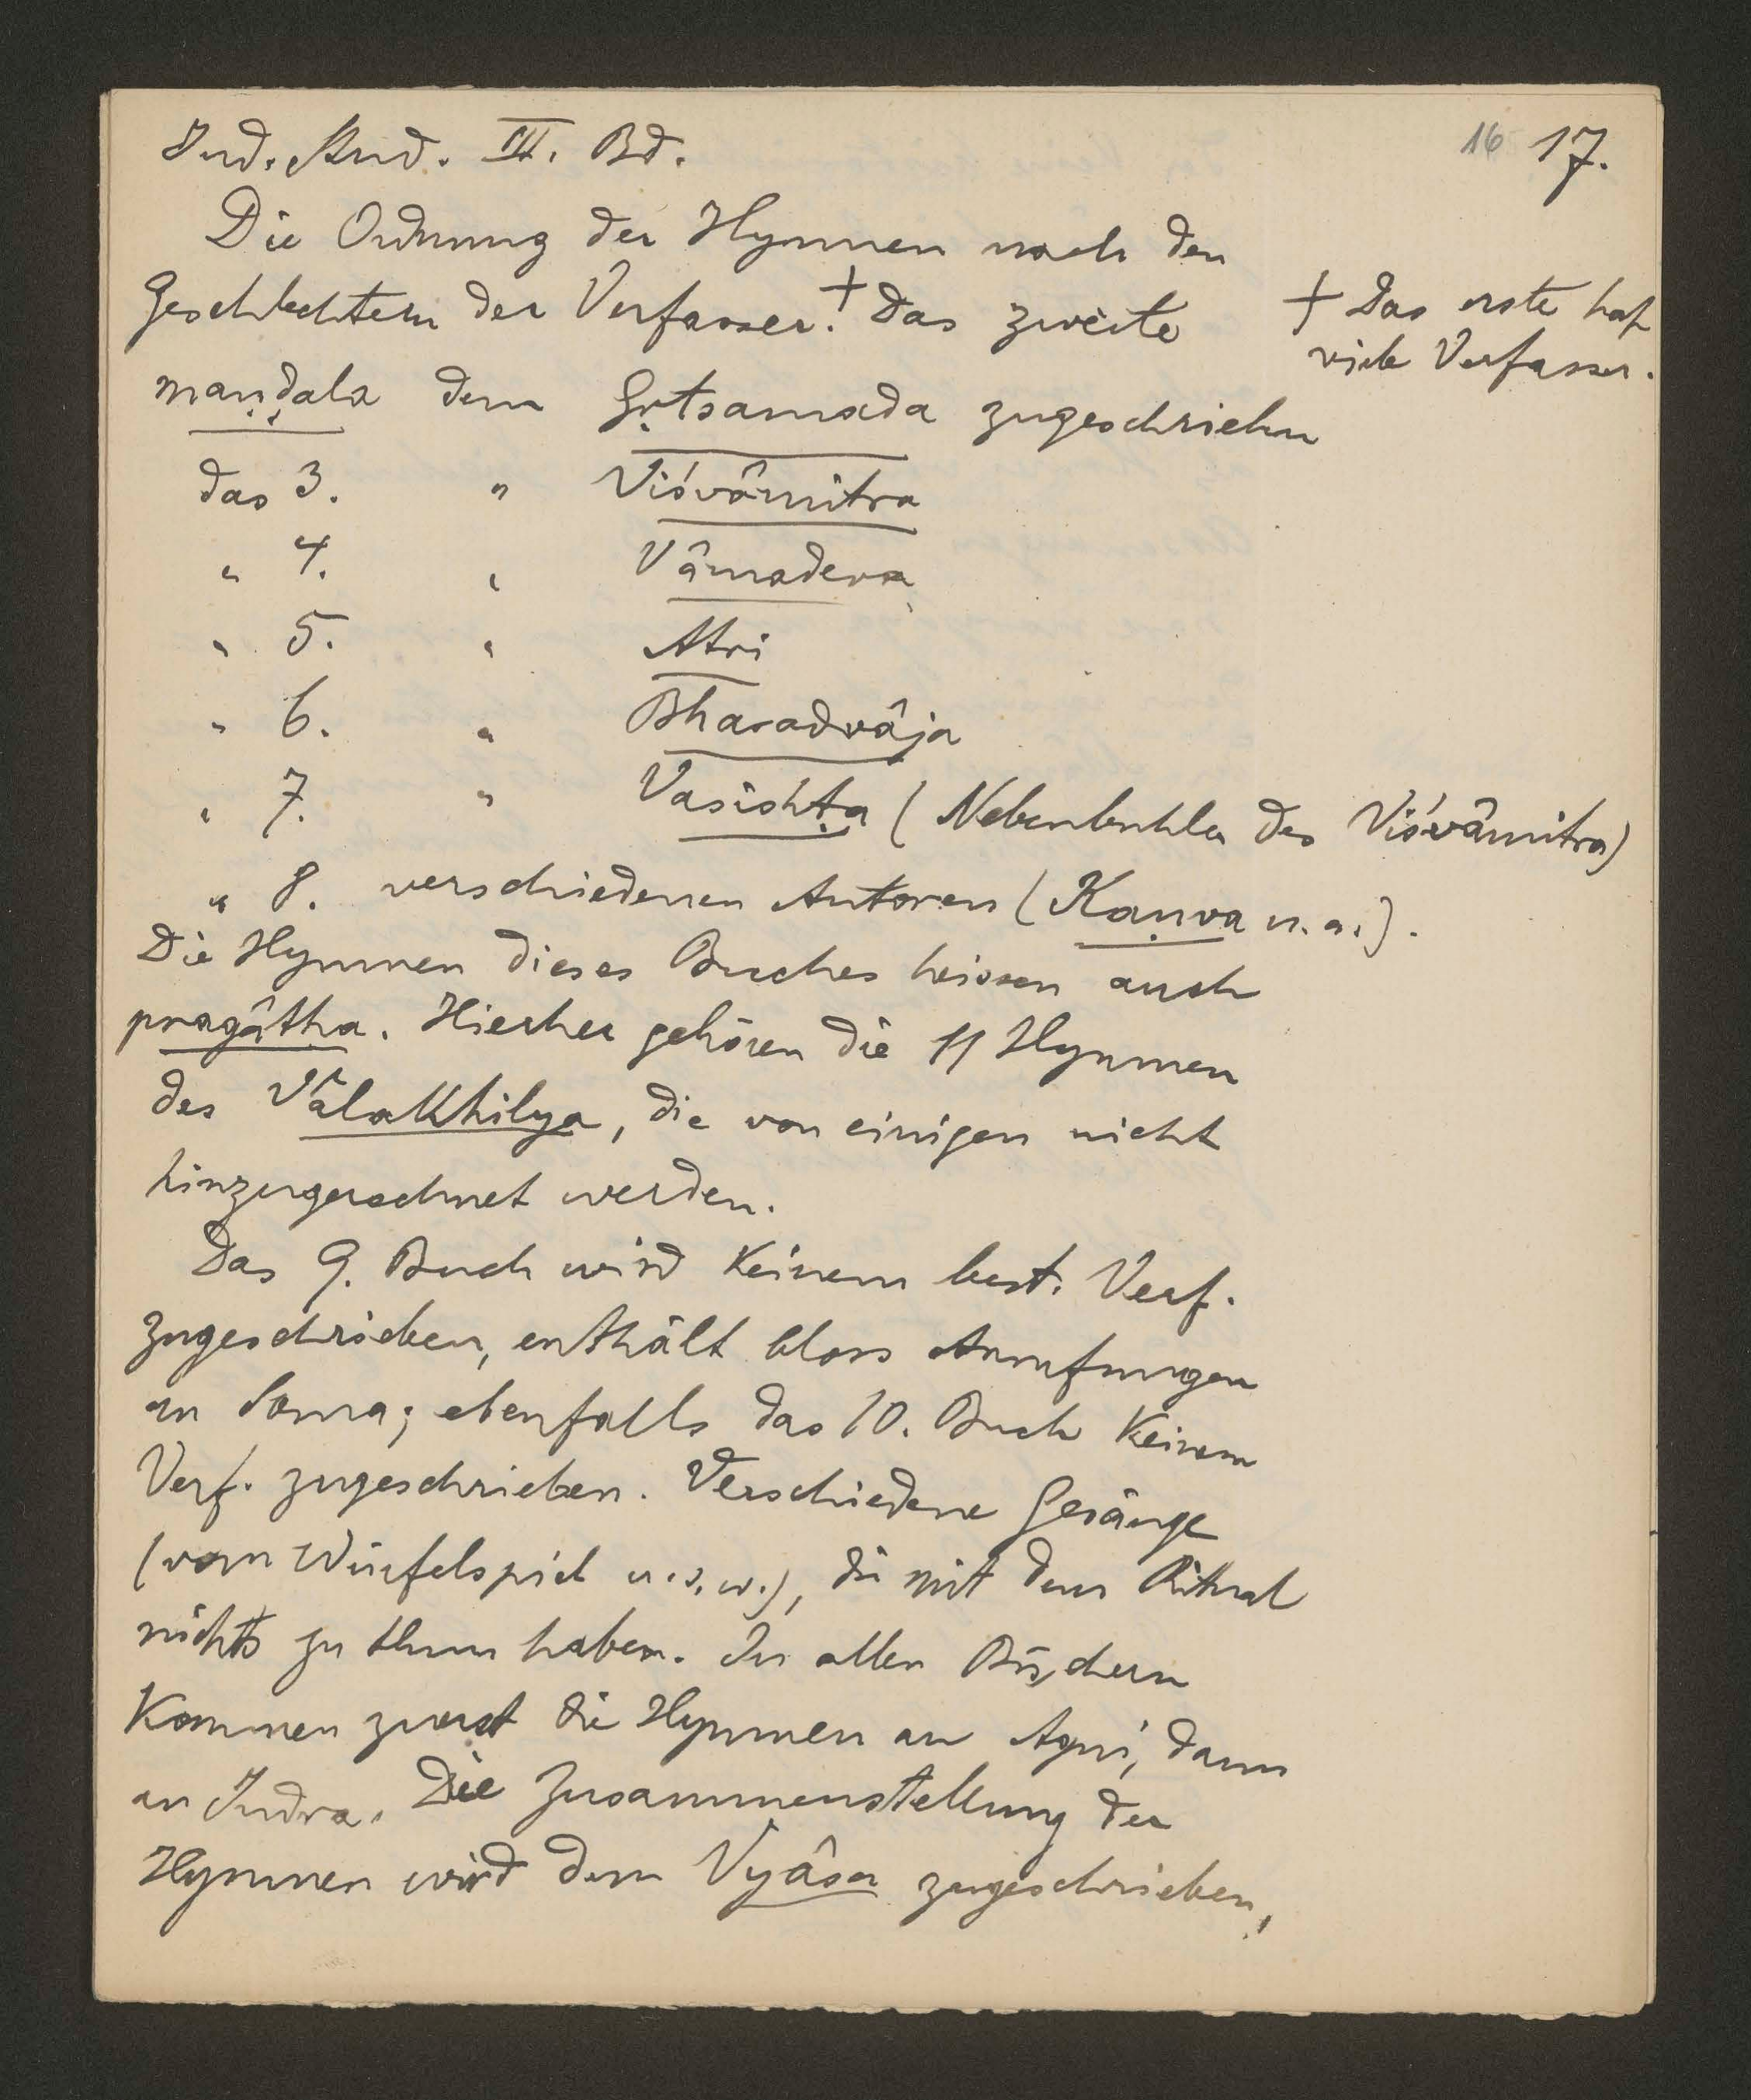 16 17.
Ind. Stud. III. Bd.
Die Ordnung der Hymnen nach den
Geschlechtern der Verfasser.+ Das zweite
+ Das erste hat
viele Verfasser.
maṇḍala dem Gṛtsamada zugeschrieben
das 3. " Viśvâmitra
" 4. " Vâmadeva
" 5. " Atri
" 6. " Bharadvâja
" 7. " Vasishṭa (Nebenbuhler des Viśvâmitra)
" 8. verschiedenen Autoren (Kaṇva u. a.).
Die Hymnen dieses Buches heissen auch
pragâtha. Hierher gehören die 11 Hymnen
des Vâlakhilya, die von einigen nicht
hinzugerechnet werden.
Das 9. Buch wird keinem best. Verf.
zugeschrieben, enthält bloss Anrufungen
an Soma; ebenfalls das 10. Buch keinem
Verf. zugeschrieben. Verschiedene Gesänge
(vom Würfelspiel u. s. w.), die mit dem Ritual
nichts zu thun haben. In allen Büchern
kommen zuerst die Hymnen an Agni, dann
an Indra. Die Zusammenstellung der
Hymnen wird dem Vyâsa zugeschrieben,